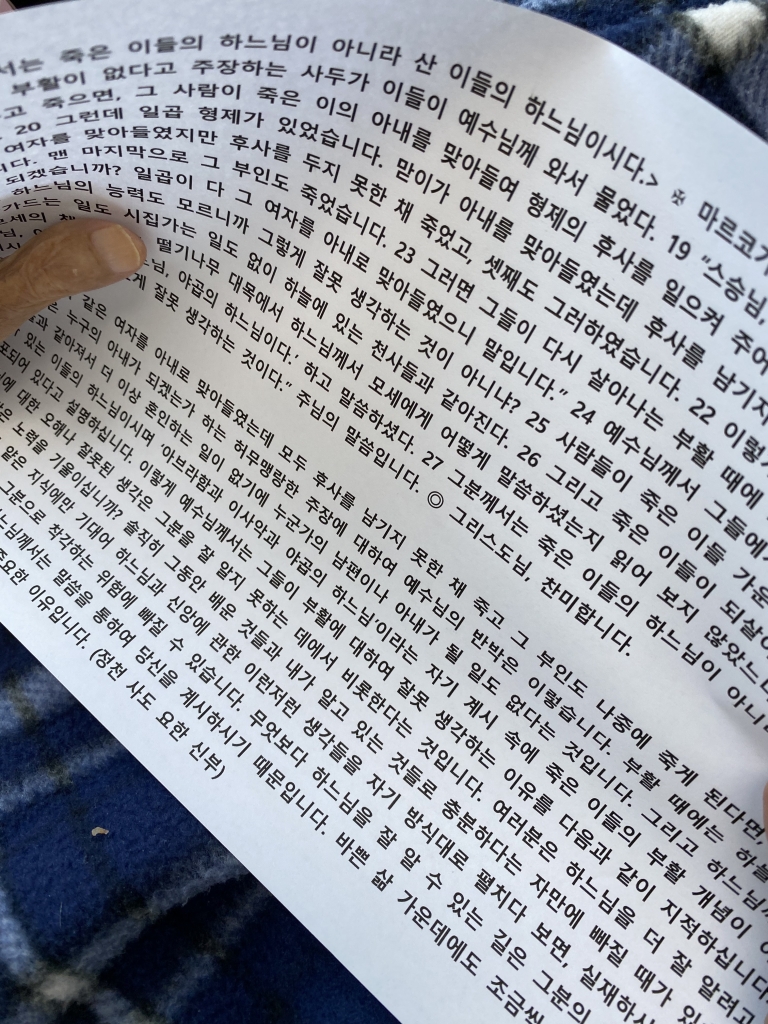 서는 죽은 이들의 하느님이 아니라 산 이들의 하느님이시다.> ✠ 마르코가
부활이 없다고 주장하는 사두가 이들이 예수님께 와서 물었다. 19 “스승님,
고 죽으면, 그 사람이 죽은 이의 아내를 맞아들여 형제의 후사를 일으켜 주어
20 그런데 일곱 형제가 있었습니다. 맏이가 아내를 맞아들였는데 후사를 남기지
여자를 맞아들였지만 후사를 두지 못한 채 죽었고, 셋째도 그러하였습니다. 22 이렇게
니다. 맨 마지막으로 그 부인도 죽었습니다. 23 그러면 그들이 다시 살아나는 부활 때에
되겠습니까? 일곱이 다 그 여자를 아내로 맞아들였으니 말입니다.” 24 예수님께서 그들에게
하느님의 능력도 모르니까 그렇게 잘못 생각하는 것이 아니냐? 25 사람들이 죽은 이들 가운
가드는 일도 시집가는 일도 없이 하늘에 있는 천사들과 같아진다. 26 그리고 죽은 이들이 되살아
떨기나무 대목에서 하느님께서 모세에게 어떻게 말씀하셨는지 읽어 보지 않았느냐
야곱의 하느님이다.’ 하고 말씀하셨다. 27 그분께서는 죽은 이들의 하느님이 아니라
잘못 생각하는 것이다.” 주님의 말씀입니다. ◎ 그리스도님, 찬미합니다.
같은 여자를 아내로 맞아들였는데 모두 후사를 남기지 못한 채 죽고 그 부인도 나중에 죽게 된다면,
은 누구의 아내가 되겠는가 하는 허무맹랑한 주장에 대하여 예수님의 반박은 이렇습니다. 부활 때에는 하늘
들과 같아져서 더 이상 혼인하는 일이 없기에 누군가의 남편이나 아내가 될 일도 없다는 것입니다. 그리고 하느님께
있는 이들의 하느님이시며 ‘아브라함과 이사악과 야곱의 하느님’이라는 자기 계시 속에 죽은 이들의 부활 개념이
포되어 있다고 설명하십니다. 이렇게 예수님께서는 그들이 부활에 대하여 잘못 생각하는 이유를 다음과 같이 지적하십니다
에 대한 오해나 잘못된 생각은 그분을 잘 알지 못하는 데에서 비롯한다는 것입니다. 여러분은 하느님을 더 잘 알려고
은 노력을 기울이십니까? 솔직히 그동안 배운 것들과 내가 알고 있는 것들로 충분하다는 자만에 빠질 때가 있
얕은 지식에만 기대어 하느님과 신앙에 관한 이런저런 생각들을 자기 방식대로 펼치다 보면, 실재하시
그분으로 착각하는 위험에 빠질 수 있습니다. 무엇보다 하느님을 잘 알 수 있는 길은 그분의
느님께서는 말씀을 통하여 당신을 계시하시기 때문입니다. 바쁜 삶 가운데에도 조금씩
중요한 이유입니다. (정천 사도 요한 신부)